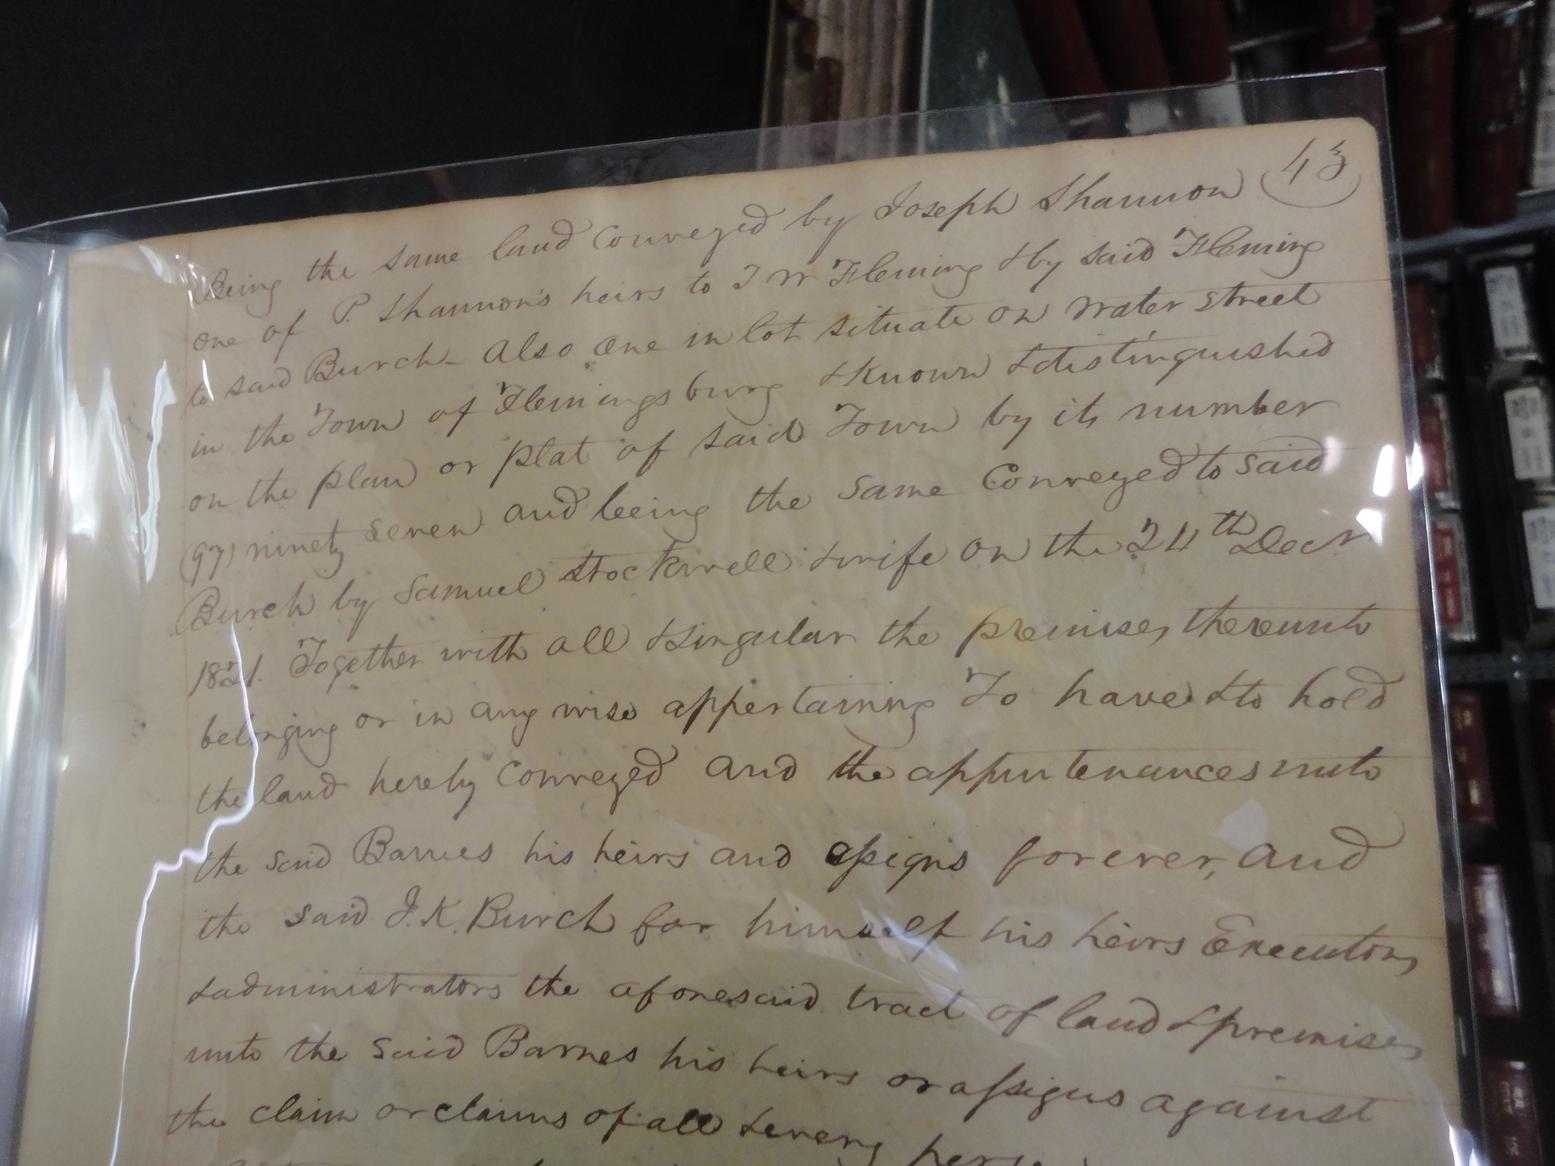 43
Being the same land Conveyed by Joseph Shannon
one of P. Shannon's heirs to I W Fleming & by said Fleming
to said Burch - Also one in lot situate on Water street
in the Town of Flemingsburg & known & distinguished
on the plan or plat of said Town by its number
(97) ninety seven and being the same Conveyed to said
Burch by Samuel Stockwell & wife on the 24th Decr
1821. Together with all & singular the premises thereunto
belonging or in any wise appertaining To have & to hold
the land hereby Conveyed and the appurtenances unto
the said Barnes his heirs and assigns forever, and
the said J. K. Burch for himself his heirs Executors
& administrators the aforesaid tract of land & premises
unto the said Barnes his heirs or assigns against
the claim or claims of all & every